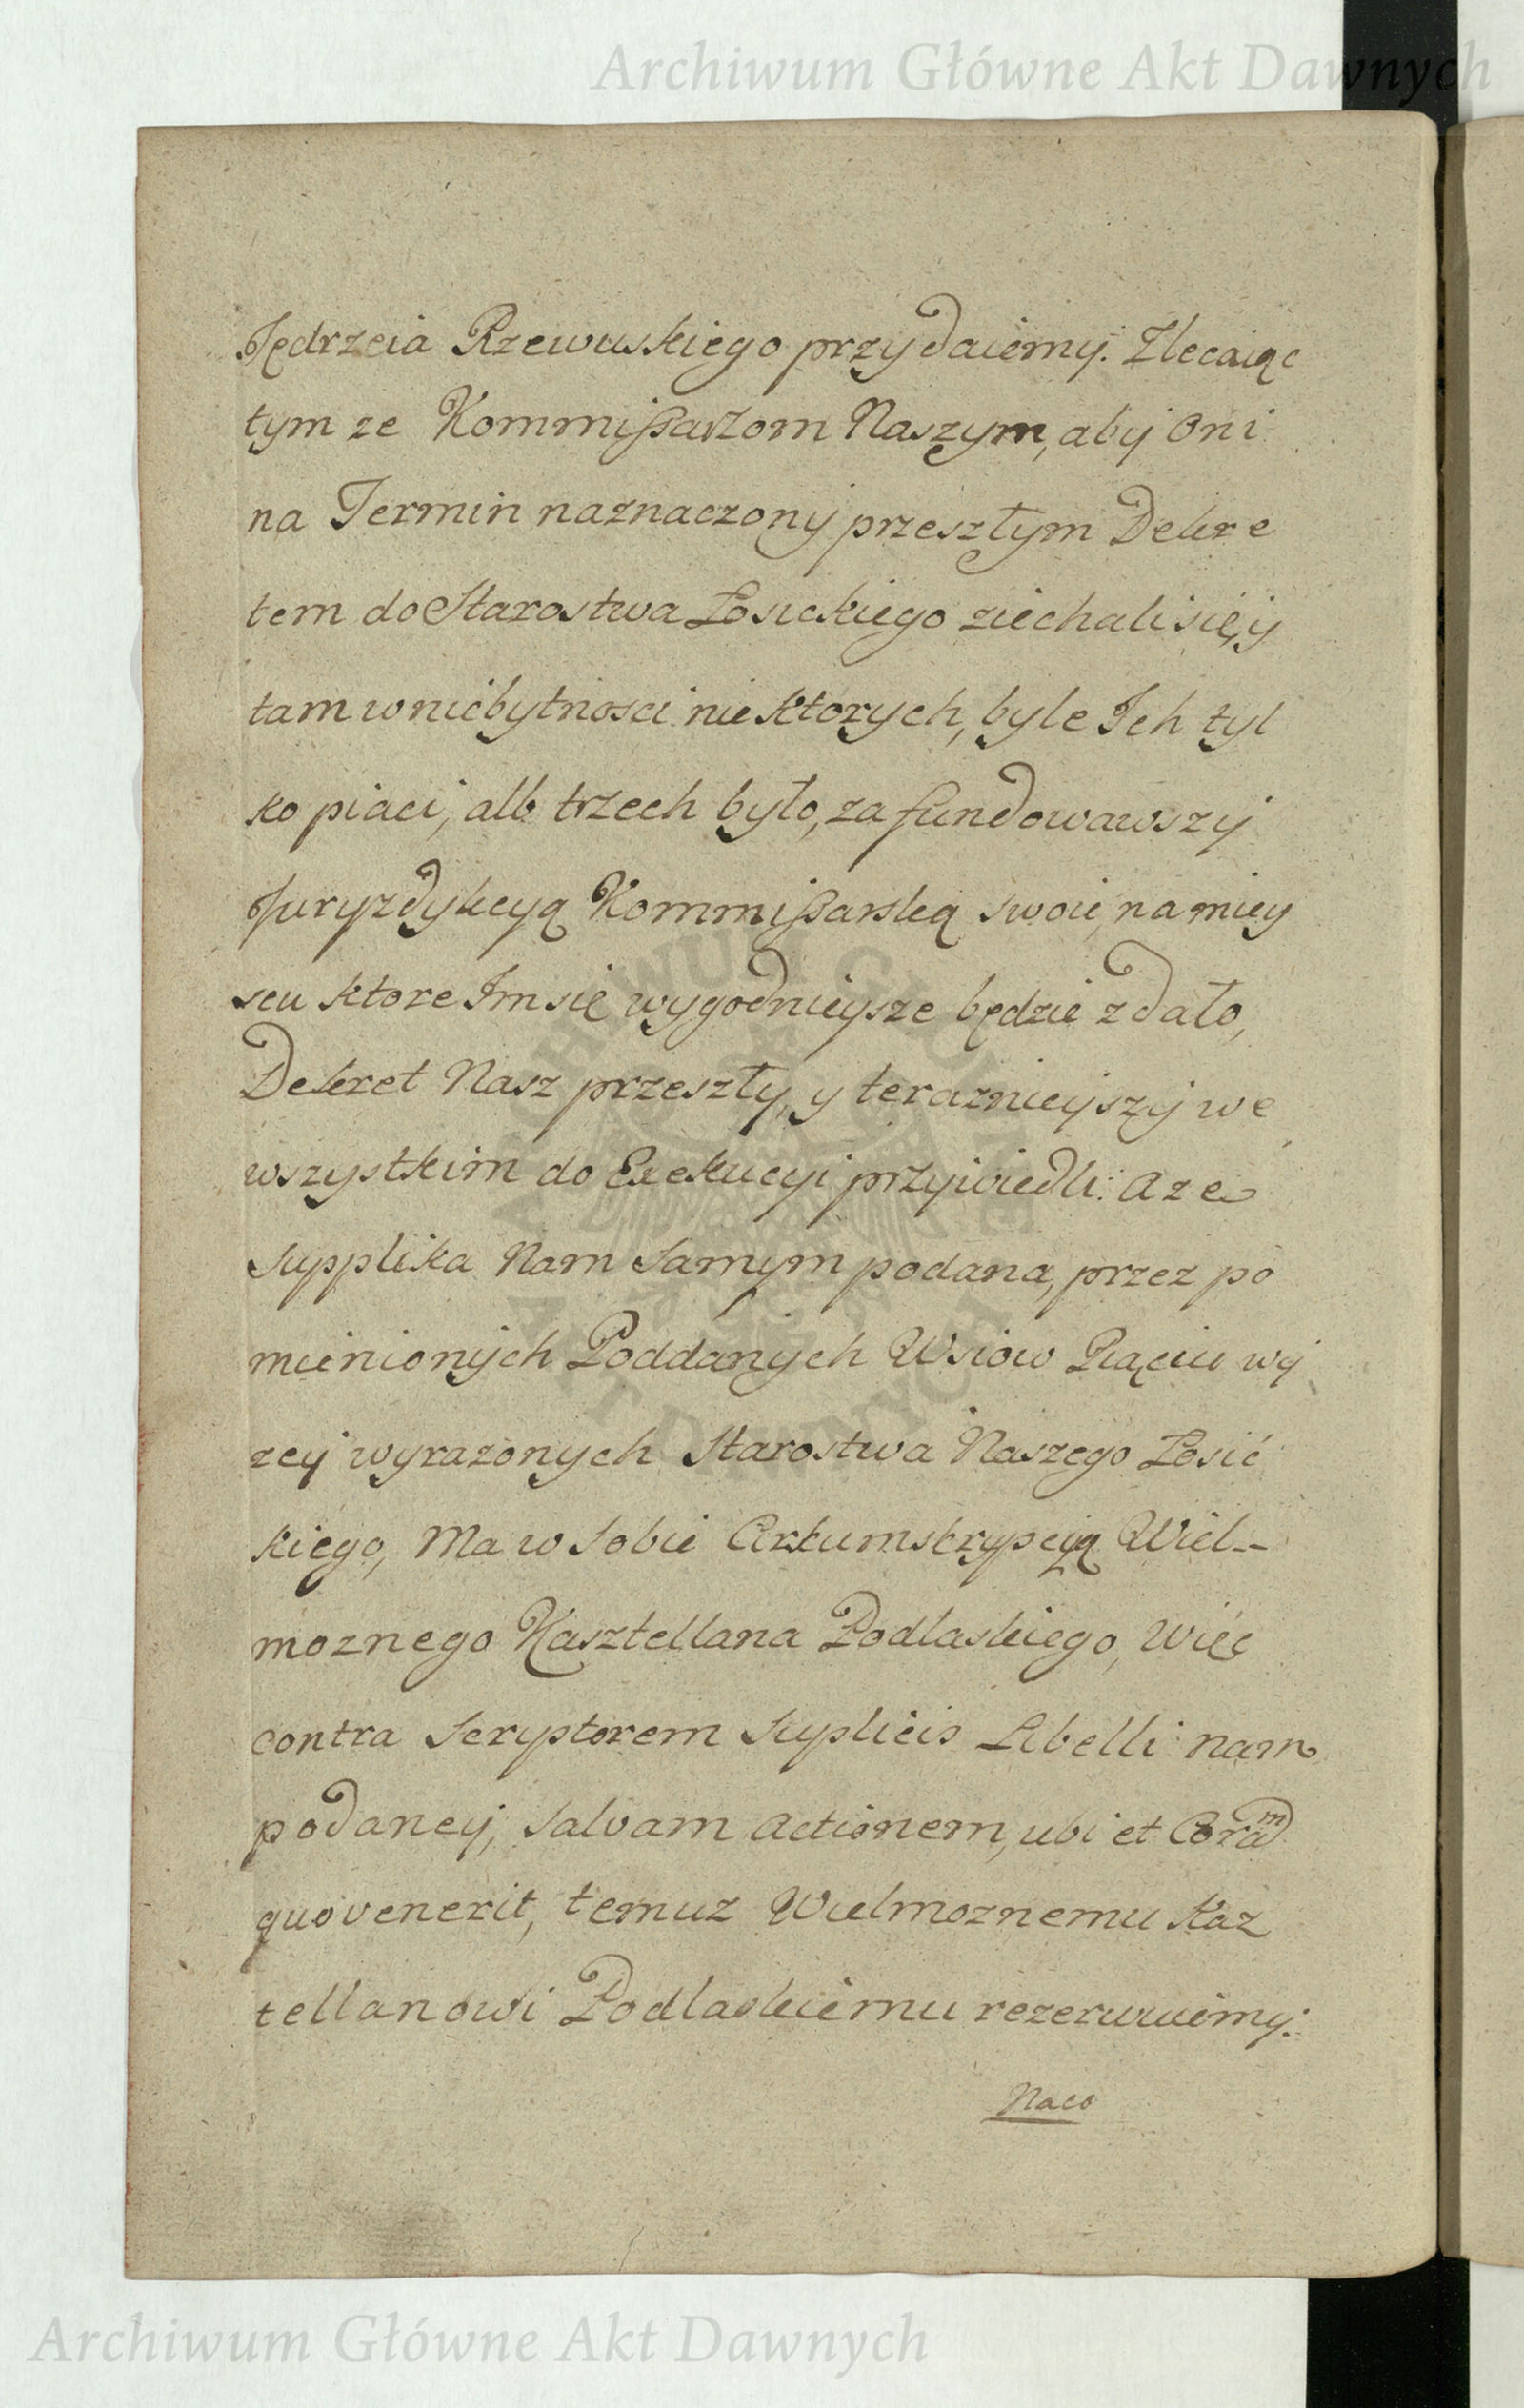 Archiwum Główne Akt Dawnych
Jędrzeia Rzewuskiego przydaiemy. Zlecaiąc
tym ze Kommißarzom Naszym, aby oni
na Termin naznaczony przeszłym Dekre
tem do Starostwa Łosickiego ziechali się, y
tam w niebytnosci niektorych, byle Ich tyl
ko piaci, alb trzech było, zafundowawszy
Juryzdykcyą Kommißarską swoię, na miey
scu ktore Im się wygodnieysze będzie zdało,
Dekret Nasz przeszły, y teraznieyszy we
wszystkim do Exekucyi przywiedli: a ze
Supplika Nam Samym podana, przez po
mienionych Poddanych Wsiow Piąciu wy
zey wyrazonych Starostwa Naszego Łosic
kiego, Ma w Sobie Cirkumskrypcyą Wiel-
moznego Kasztellana Podlaskiego, Więc
contra Scryptorem Suplicis Libelli nam
podaney, Salvam actionem, ubi et Cora^m
quovenerit, temuz Wielmoznemu Kaz
tellanowi Podlaskiemu rezerwuiemy.
Naco
ARCHIWUM GŁÓWNE AKT DAWNYCH
Archiwum Główne Akt Dawnych